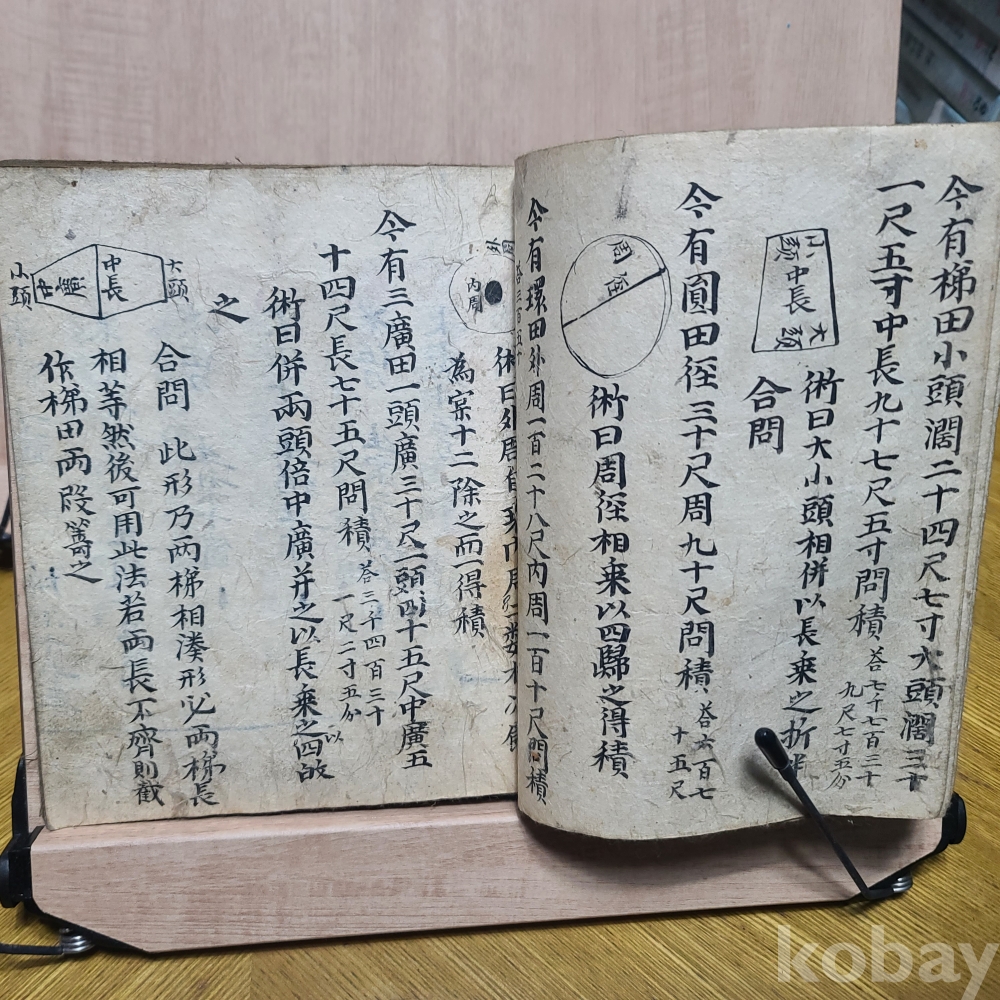 今有梯田小頭濶二十四尺七寸大頭濶三十
一尺五寸中長九十七尺五寸問積 荅七千七百三十
九尺七寸五分
小頭
中長
大頭
術曰大小頭相併以長乗之折半
合問
今有圓田徑三十尺周九十尺問積 荅六百七
十五尺
周
徑
術曰周徑相乗以四歸之得積
今有環田外周一百二十八尺內周一百十尺問積
內周
為宲十二除之而一得積
今有三廣田一頭廣三十尺一頭四十五尺中廣五
十四尺長七十五尺問積 荅三千四百三十
一尺二寸五分
術曰併兩頭倍中廣并之以長乗之四㱕 以
之
大頭
中長
中廣
小頭
合問 此形乃两梯相湊形必兩梯長
相等然後可用此法若兩長不齊則截
作梯田两段筭之
kobay